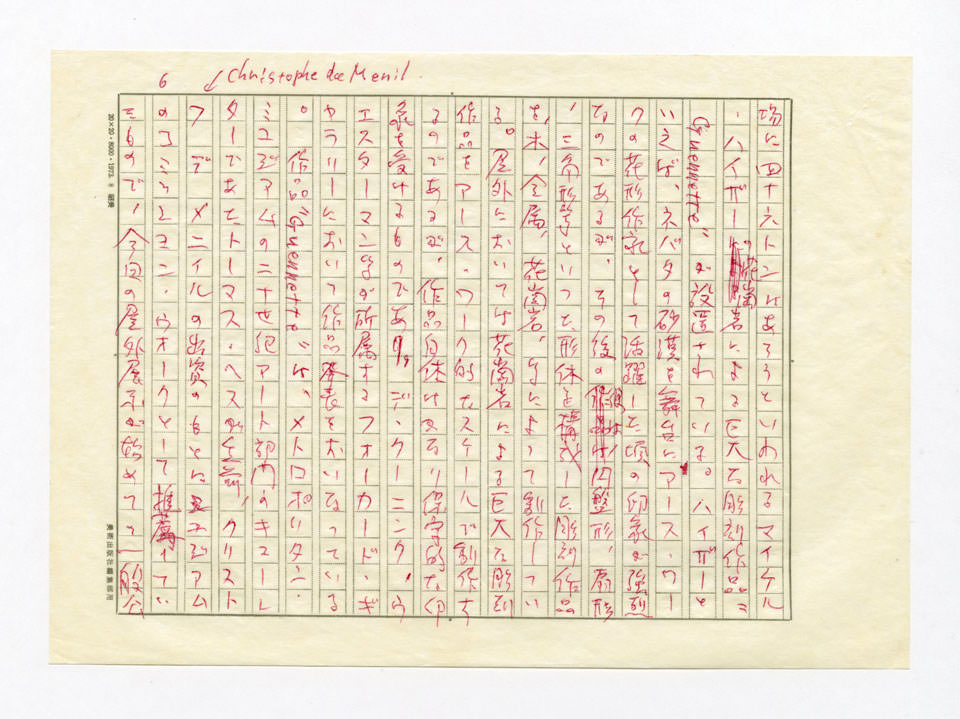 6
Christophe de Menil
場に四十六トンはあろうといわれるマイケル
・ハイザーの花崗岩による巨大な彫刻作品"
Guennette"が設置されている。ハイザーと
いえば、ネバダの砂漠を舞台にアース・ワー
クの花形作家として活躍した頃の印象が強烈
なのであるが、その後の彼は円盤形、扇形
、三角形等といった形体を構成した彫刻作品
を、木、金属、花崗岩、によって制作してい
る。屋外においては花崗岩による巨大な彫刻
作品をアース・ワーク的なスケールで制作す
るのであるが、作品自体はかなり保守的な印
象を受けるものであり、デ・クーニング、ウ
エスターマン等が所属するフォーカード・ギ
ャラリーにおいて作品発表をおこなっている
。 作品"Guennette"は、メトロポリタン・
ミュージアムの二十世紀アート部門のキューレ
ターであったトーマス・ヘスが生前、クリスト
フ・デ・メニイルの出資のもとにミュージアム
のコミッション・ウォークとして推薦してい
たもので、今回の屋外展示が始めての一般公
20×20・8000・1973. 8
美術出版社編集部用